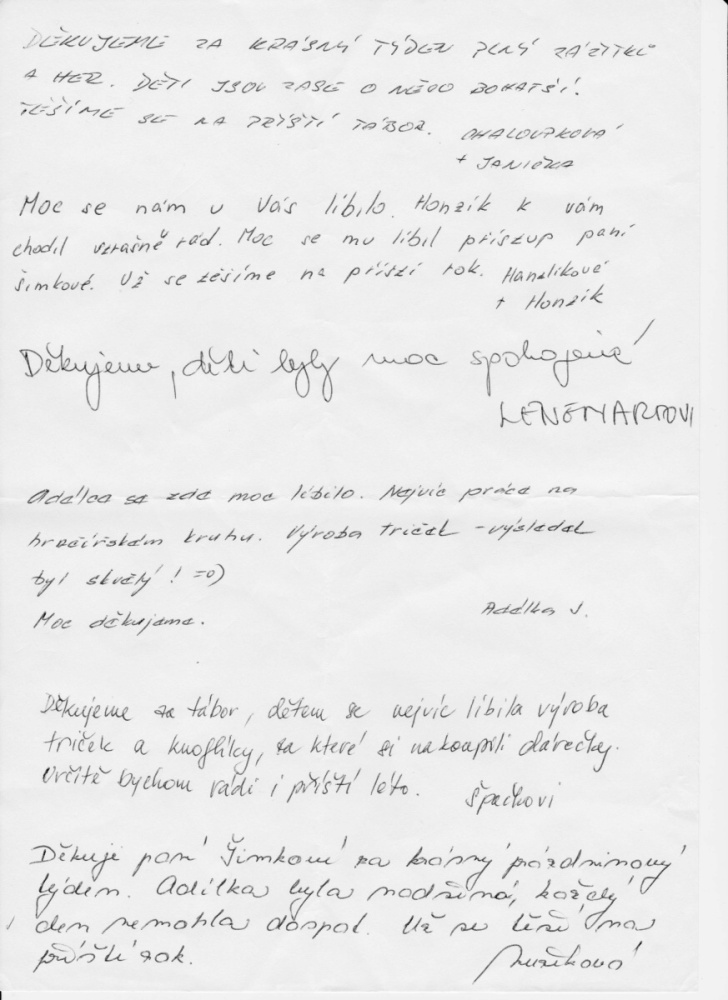 DĚKUJEME ZA KRÁSNÝ TÝDEN PLNÝ ZÁŽITKŮ
A HER. DĚTI JSOU ZASE O NĚCO BOHATŠÍ.
TĚŠÍME SE NA PŘÍŠTÍ TÁBOR. CHALOUPKOVÁ
+ JANIČKA
Moc se nám u Vás líbilo. Honzík k vám
chodil strašně rád. Moc se mu líbil přístup paní
Šimkové. Už se těšíme na příští rok. Hanzlíkové
+ Honzík
Děkujeme, děti byly moc spokojené!
Adélce se zde moc líbilo. Nejvíc práce na
hrnčířském kruhu. Výroba triček - výsledek
byl skvělý! =o)
Moc děkujeme. Adélka J.
Děkujeme za tábor, dětem se nejvíc líbila výroba
triček a knoflíky, za které si nakoupili dárečky.
Určitě bychom rádi i příští léto. Špačkovi
Děkuji paní Šimkové za krásný prázdninový
týden. Adélka byla nadšená, každý
den nemohla dospat. Už se těší na
příští rok.